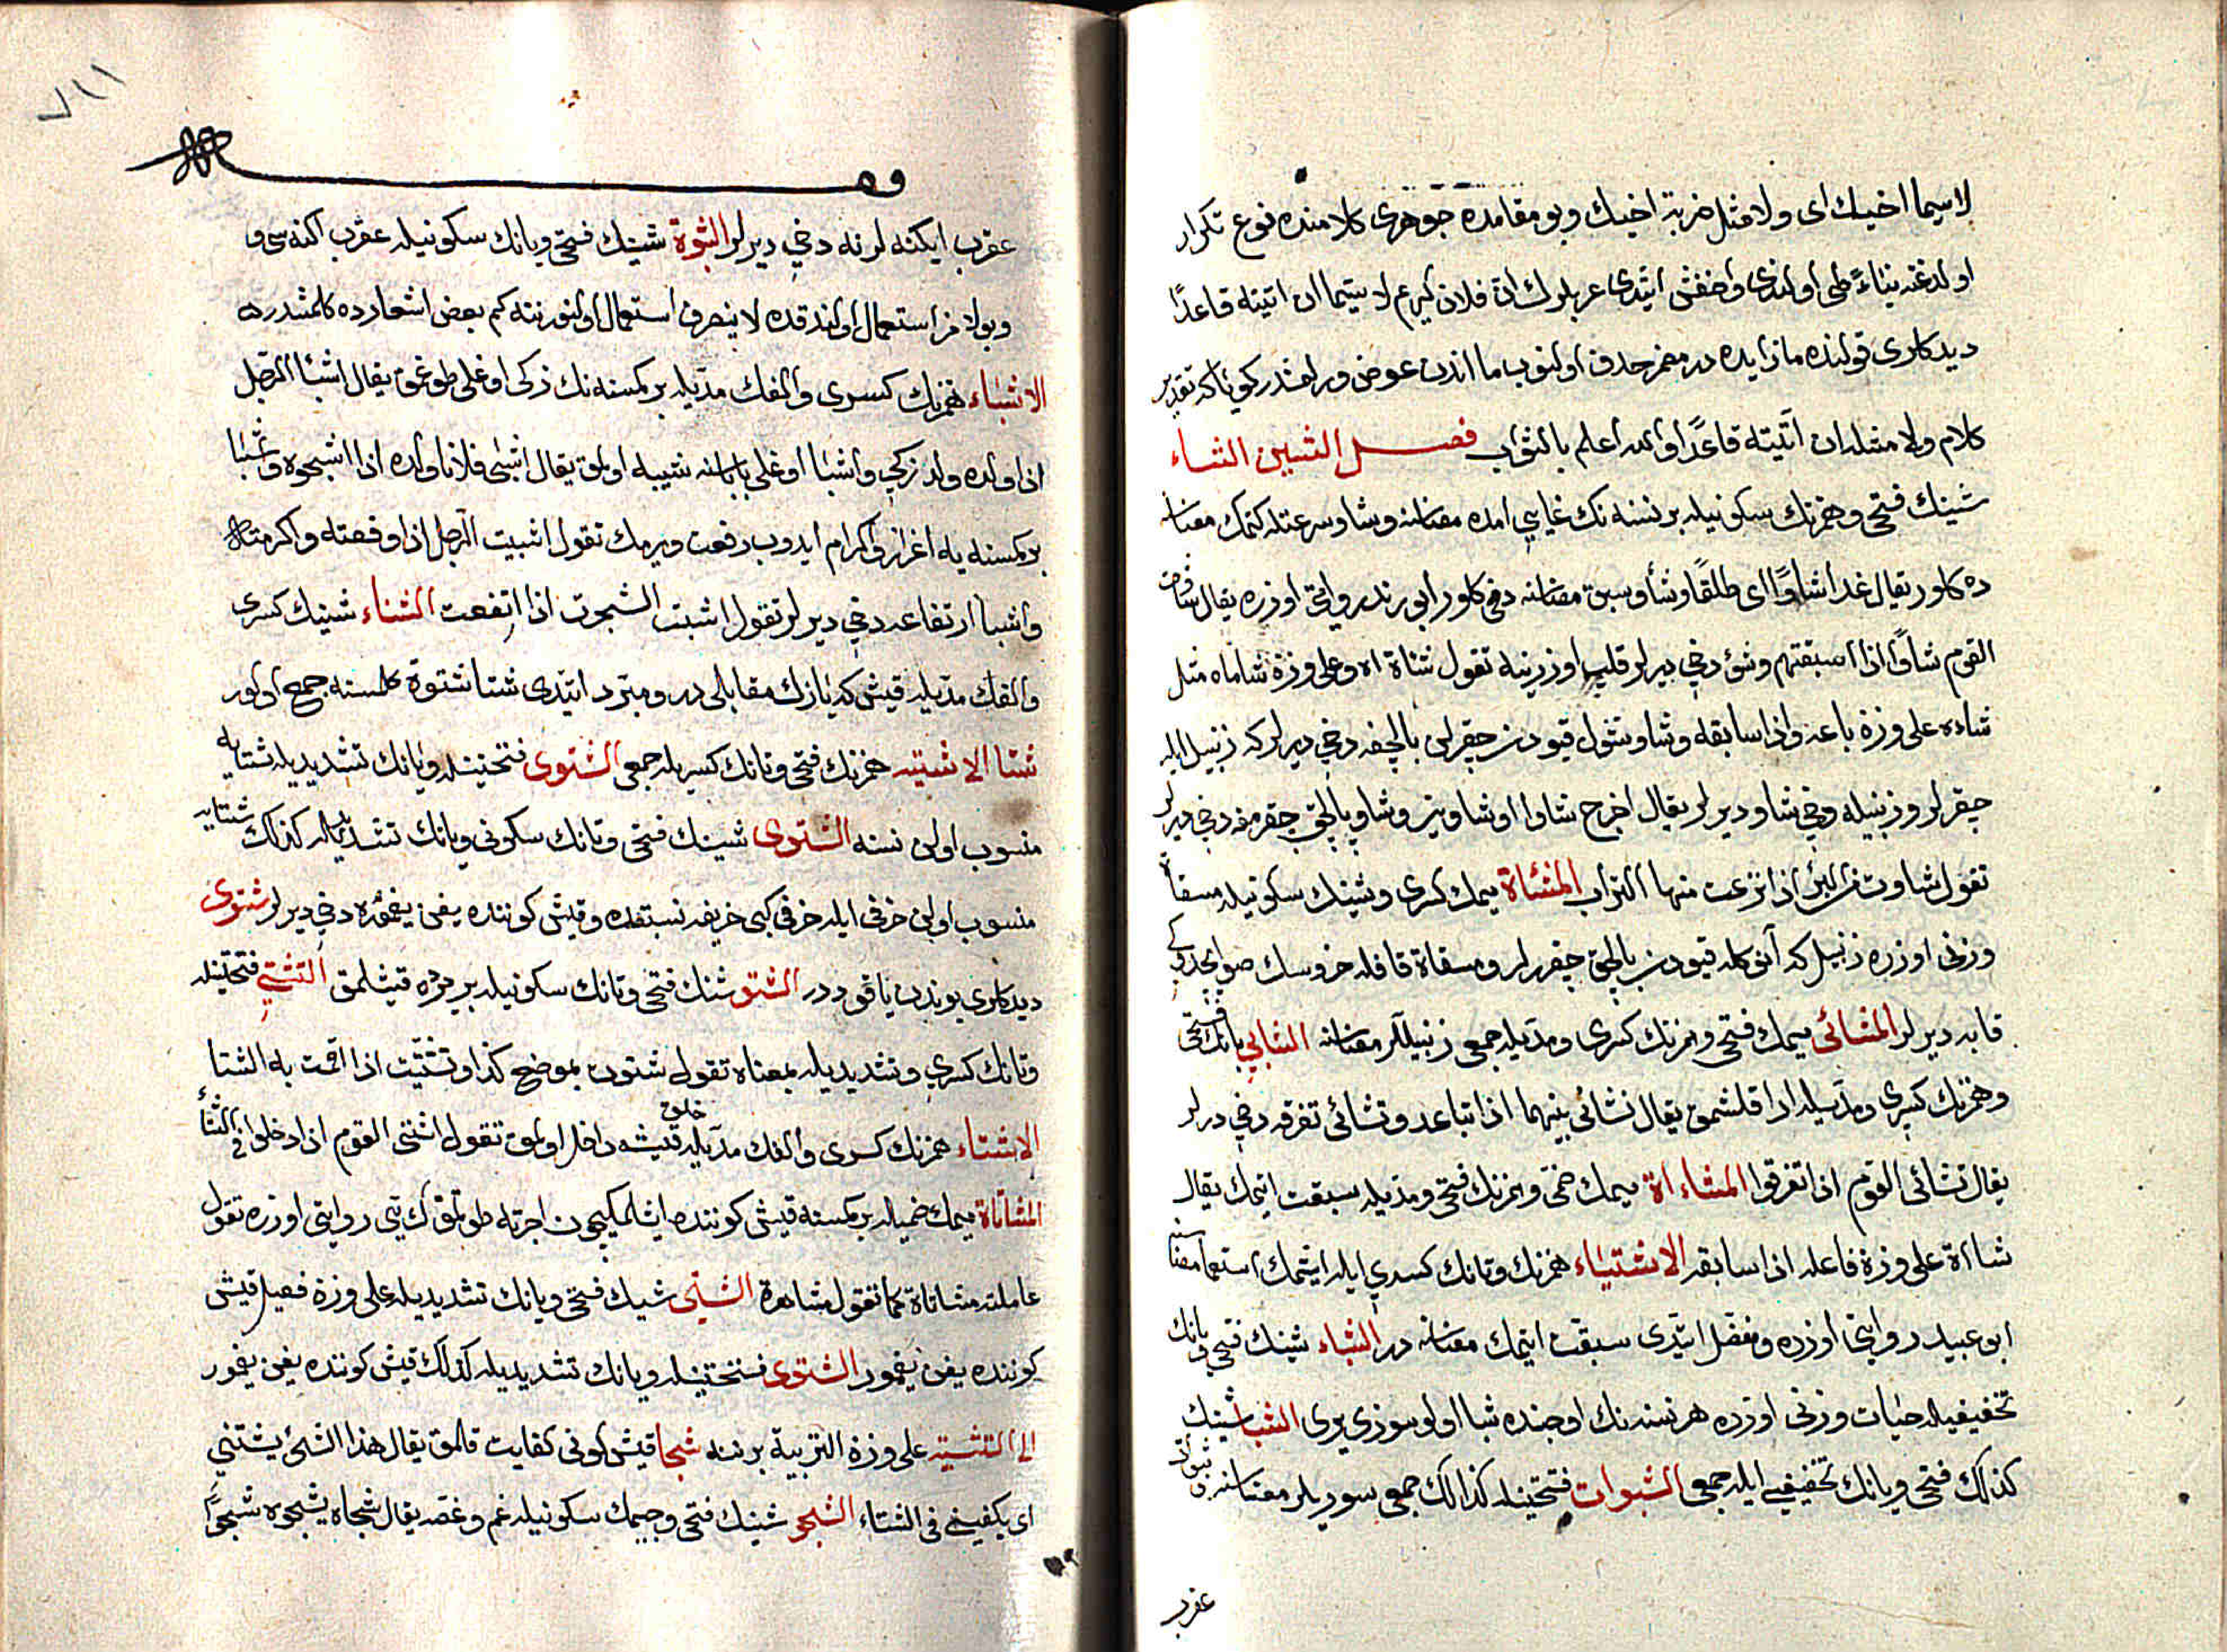 لاسیما اخیك ای ولا مثل ضربة اخیك وبو مقامده جوهری كلامنده نوع تكرار
اولدغنه بناءً طی اولندی واخفش ایتدی عربلرك ان فلان كریم لا سیما ان اتیته قاعدًا
دیدكلری قولنده ما زایده در مضمر حذف اولنوب ما اندن عوض ویرلمشدر كویا كه تقدیر
كلام ولا مثله ان اتیته قاعدًا والله اعلم بالثواب فصل الشین الشاء
شینك فتحی وهمزنك سكونیله بر نسنه نك غایتی امده معناسنه وشاو سرعتله كتمك معناسنه
ده كلور یقال غدا شاوًا ای طلقًا وشأو سبق معناسنه دخی كلور ابو زید روایتی اوزره یقال شاوت
القوم شاوًا اذا سبقتهم وشؤ دخی دیرلر قلب اوزرینه تقول شاة اه وعلی وزة شاماه مثل
شاءه علی وزة باعه واذا سابقه وشاو شول قیودن چقرلن بالچغه دخی دیرلر كه زنبیل ایله
چقرلر وزنبیله دخی شاو دیرلر یقال اخرج شاوا او شاوین وشاو بالچق چقرمغه دخی دیرلر
تقول شاوت من البئر اذا نزعت منها التراب المشئاة میمك كسری وشینك سكونیله مسقاة
وزنی اوزره زنبیل كه آنی كله قیودن بالچق چقررلر ومسقاة قافله خروسك صو ایچدوكی
قابه دیرلر المشائی میمك فتحی وهمزنك كسری ومدیله جمعی زنبیللر معناسنه التشائی بانك فتحی
وهمزنك كسری ومدیله ارا قلشمق یقال تشائی بینهما اذا تباعد وتشائی تفرقه دخی درلر
یقال تشائی القوم اذا تفرقوا المشاءاة میمك ضمی وهمزنك فتحی ومدیله سبقت ایتمك یقال
شاءاة علی وزة فاعله اذا سابقه الاشتیاء همزنك وتانك كسری ایله ایشتمك استماع معناسنه
ابو عبید روایتی اوزره ومفضل ایتدی سبقت ایتمك معناسنه در الشباء شینك فتحی وبانك
تخفیفیله حیات وزنی اوزره هر نسنه نك اوجنده شبا اولو سوزی یری الشبا شینك
كذلك فتحی وبانك تخفیفی ایله جمعی الشبوات فتحتینله كذالك جمعی سوریلر معناسنه
عقرب
عقرب ایكنه لرنه دخی دیرلر الشبوة شینك فتحی وبانك سكونیله عقرب اكنه سی و
وبولامز استعمال اولندقده لا ینصرف استعمال اولنور نته كم بعض اشعارده كلمشدر
الاشباء همزنك كسری والفك مدیله بر كمسنه نك زكی اوغلی طوغمق یقال اشبا الرجل
اذا ولده ولد زكی واشبا اوغلی باباسنه شبیه اولمق یقال اشبی فلانا ولده اذا اشبهوه واشبا
بر كمسنه یه اعزاز واكرام ایدوب رفعت ویرمك تقول اشبیت الرجل اذا رفعته واكرمته
واشبا ارتفاعه دخی دیرلر تقول اشبت الشجرت اذا ارتفعت الشتاء شینك كسری
والفك مدیله قیش كه یازك مقابلی در ومبرد ایتدی شتا شتوة كلمسنه جمع اولور
شتا الاشتیه همزنك فتحی وتانك كسریله جمعی الشتوی فتحتینله ویانك تشدیدیله شتایه
منسوب اولن نسنه الشتوی شینك فتحی وتانك سكونی ویانك تشدیدیله كذلك شتایه
منسوب اولن خرفی ایله خرفی كبی خریفه نسبتده وقیش كوننده یغن یغموره دخی دیرلر شتوی
دیدكلری بوندن یاقوددر الشتو شینك فتحی وتانك سكونیله بر یرده قیشلمق التشتی فتحتینله
وتانك كسری وتشدیدیله بمعناه تقول شتوت بموضع كذا وتشتیت اذا اقمت به الشتا
الاشتاء همزنك كسری والفك مدیله خلق قیشه داخل اولمق تقول اشتی القوم اذا دخلوا فی الشتاء
المشاتاة میمك ضمیله بر كمسنه قیش كوننده ایشلمكیچون اجرتله طوتمق كسائی روایتی اوزره تقول
عاملته مشاتاة كما تقول مشاهرة الشتی شینك فتحی ویانك تشدیدیله علی وزة فعیل قیش
كوننده یغن یغمور الشتوی فتحتینله ویانك تشدیدیله كذلك قیش كوننده یغن یغمور
الی التشتیه علی وزة التربیة بر نسنه شجا قیش كونی كفایت قلمق یقال هذا الشئ یشتنی
ای یكفینی فی الشتاء الشجو شینك فتحی وجیمك سكونیله غم وغصه یقال شجاه یشجوه شجوًا